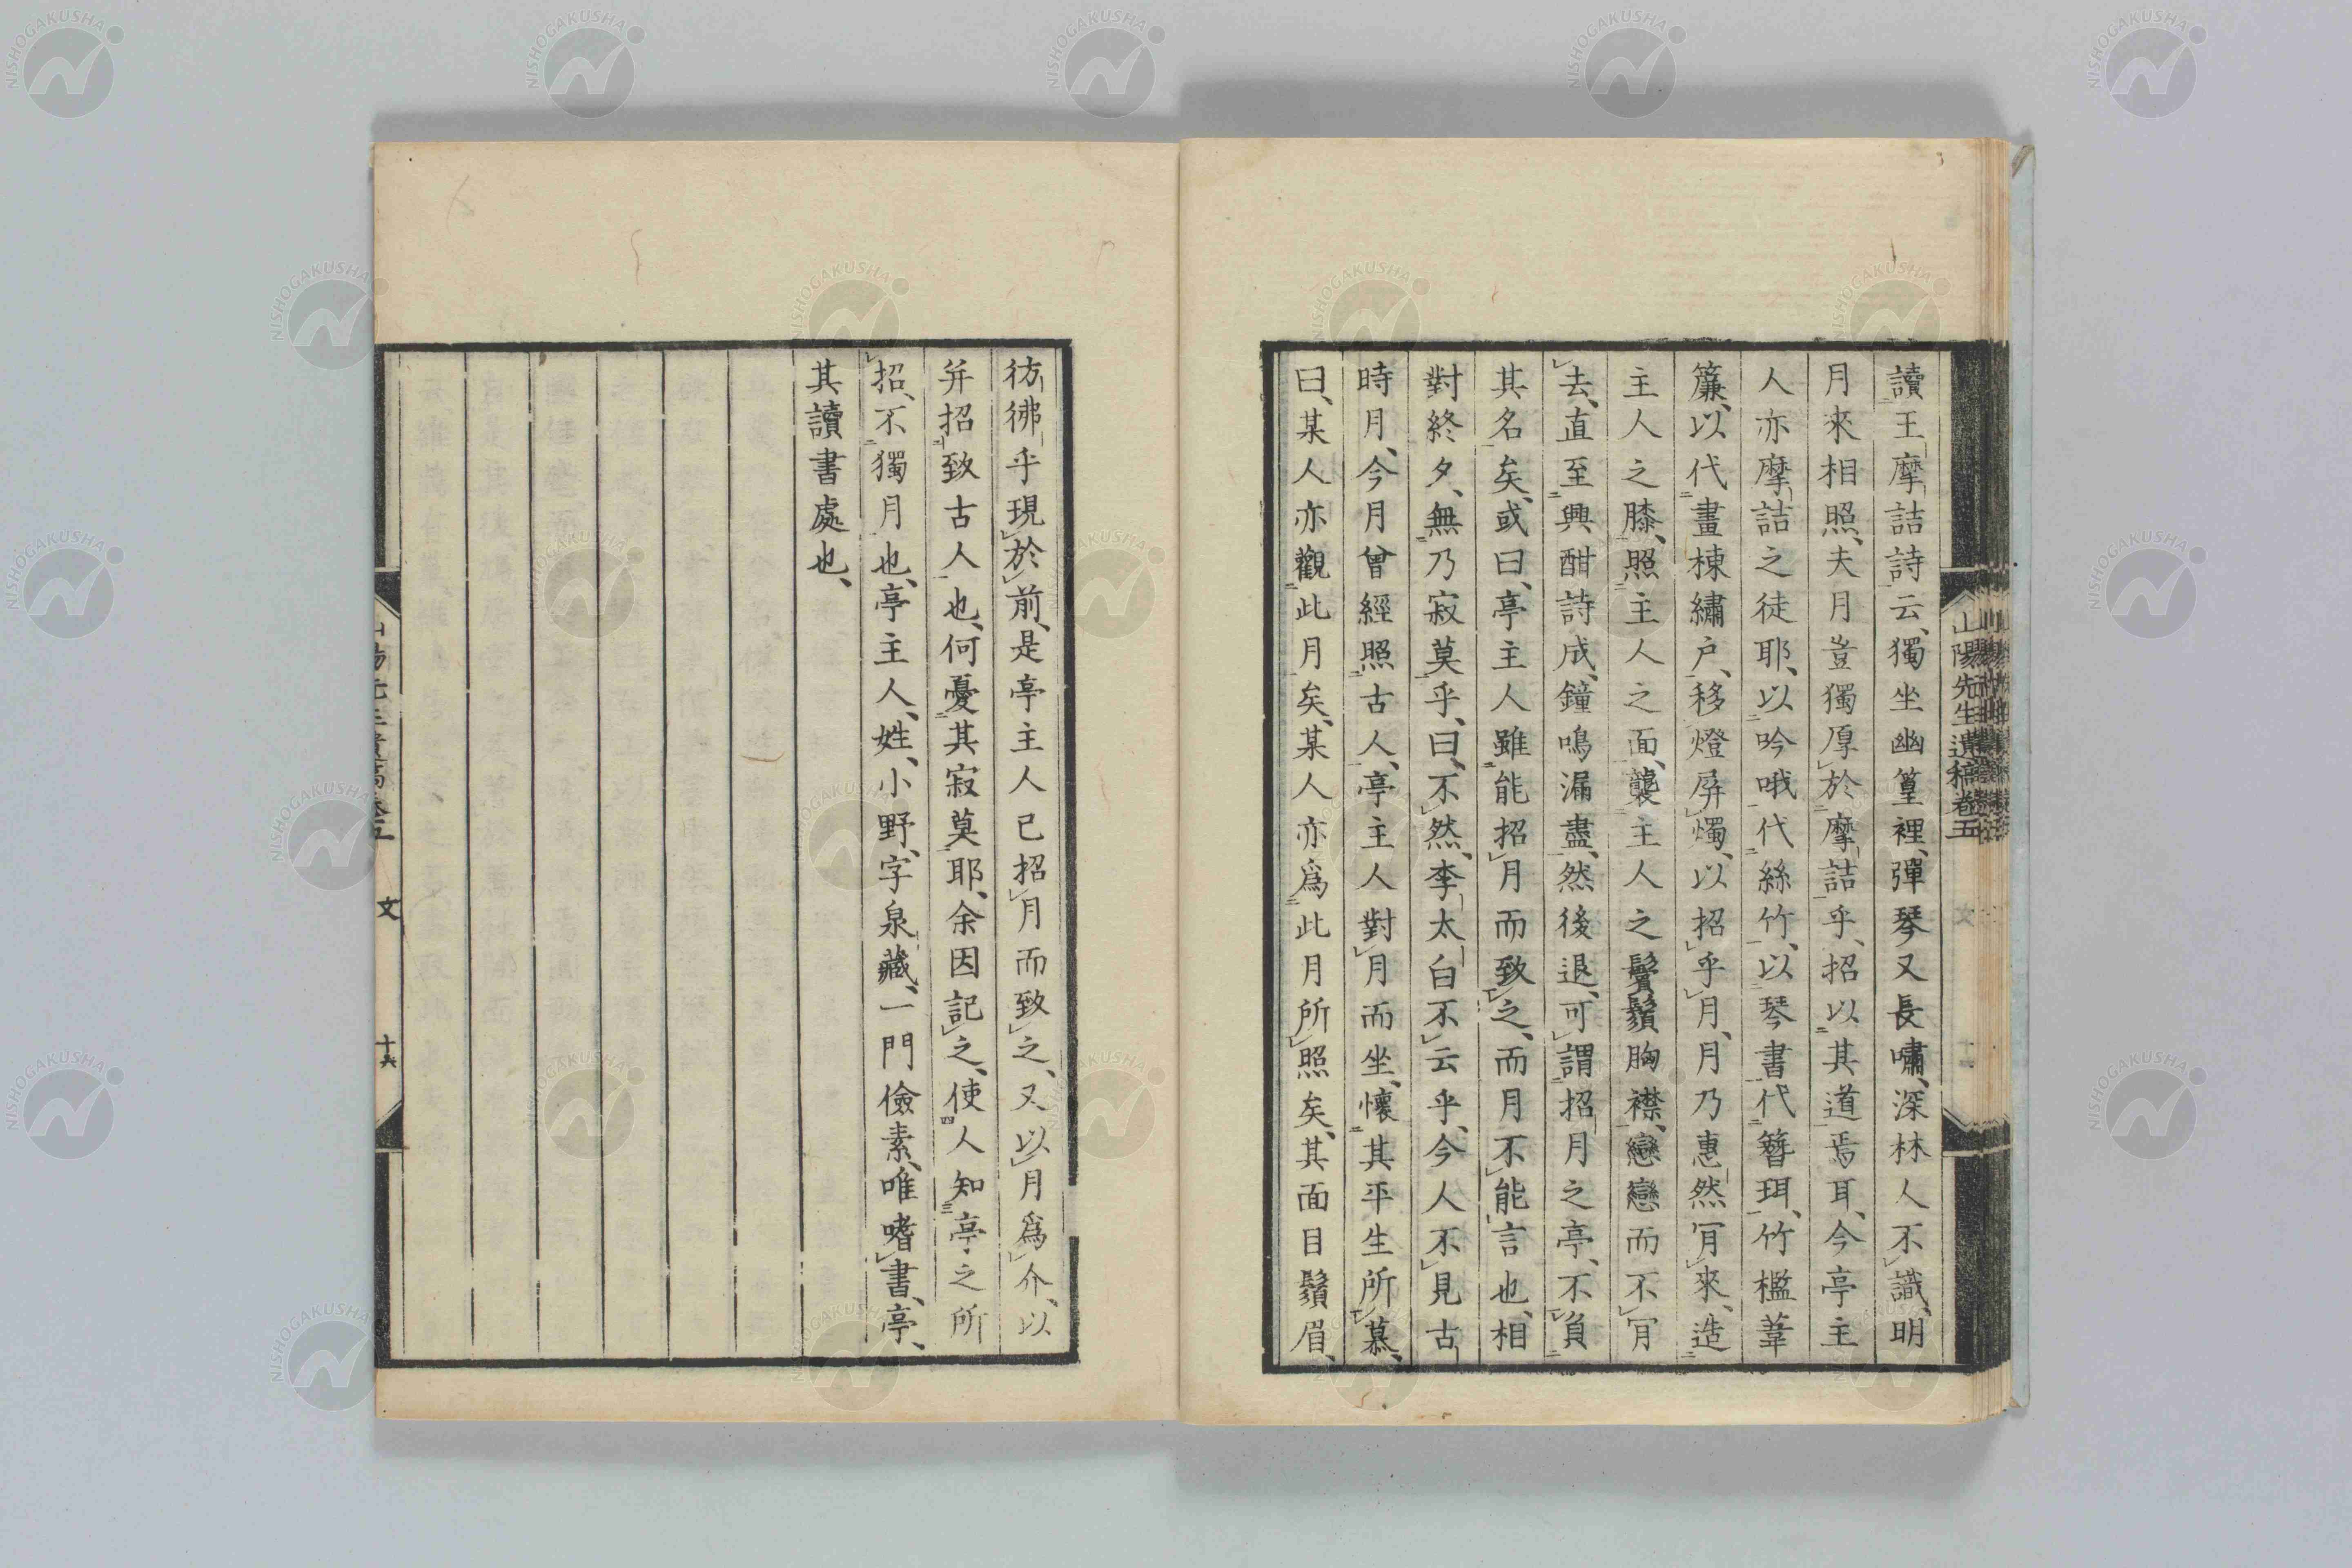 讀王摩詰詩云、獨坐幽篁裡、彈琴又長嘯、深林人不識、明
月來相照、夫月豈獨厚於摩詰乎、招以其道焉耳、今亭主
人亦摩詰之徒耶、以吟哦代絲竹、以琴書代簪珥、竹檻葦
簾、以代畫棟繡戶、移燈屏燭、以招乎月、月乃惠然肎來、造
主人之膝、照主人之面、襲主人之鬢鬚胸襟、戀戀而不肎
去、直至興酣詩成、鐘鳴漏盡、然後退、可謂招月之亭、不負
其名矣、或曰、亭主人雖能招月而致之、而月不能言也、相
對終夕、無乃寂莫乎、曰、不然、李太白不云乎、今人不見古
時月、今月曾經照古人、亭主人對月而坐、懷其平生所慕、
曰、某人亦觀此月矣、某人亦爲此月所照矣、其面目鬚眉、
山陽先生遺稿卷五
文
彷彿乎現於前、是亭主人已招月而致之、又以月爲介、以
并招致古人也、何憂其寂莫耶、余因記之、使人知亭之所
招、不獨月也、亭主人、姓小野、字泉藏、一門儉素、唯嗜書、亭、
其讀書處也、
文
十六
NISHOGAKUSHA